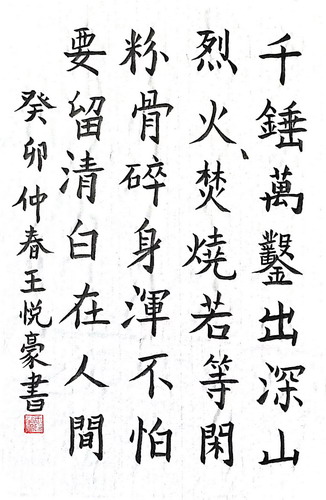 千錘萬鑿出深山
烈火焚燒若等閑
粉骨碎身渾不怕
要留清白在人間
癸卯仲春王悦豪書